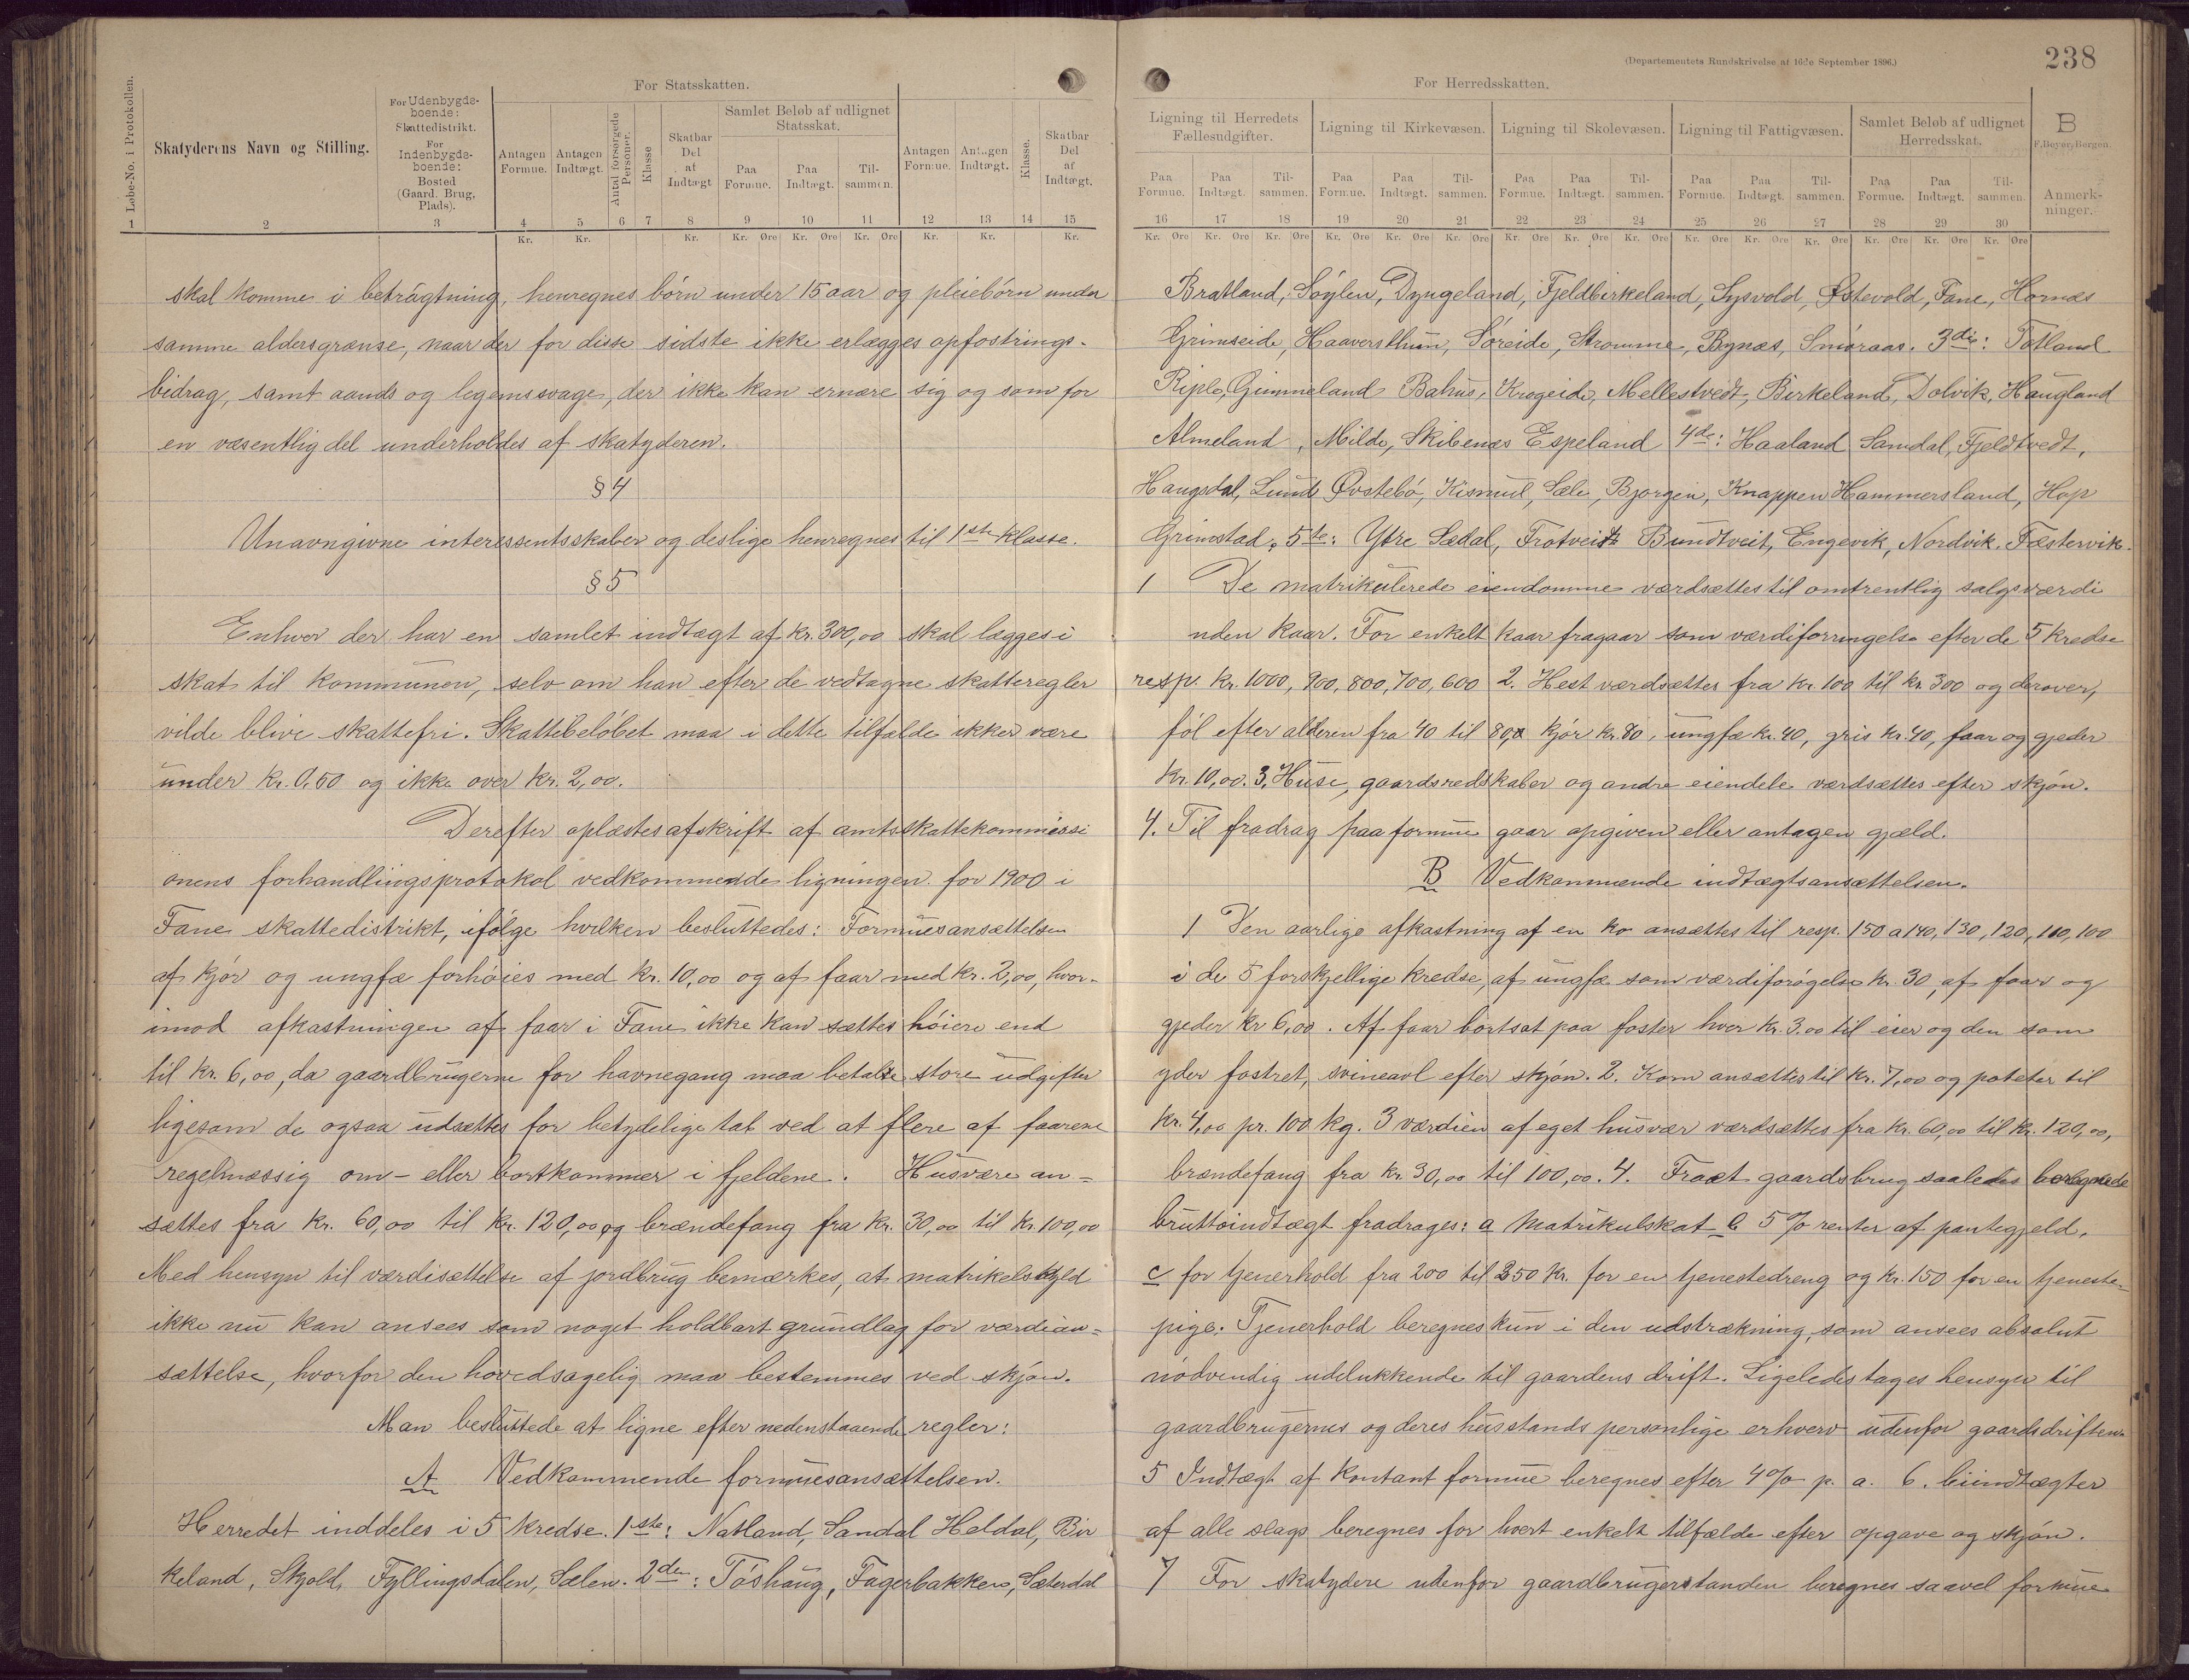 238
(Departementets Rundskrivelse af 16de September 1896.)
For Statsskatten.
For Herredsskatten.
Løbe-No. i Protokollen.
Skatyderens Navn og Stilling.
For Udenbygds-
boende:
Skattedistrikt.
For
Indenbygds-
boende:
Bosted
(Gaard, Brug,
Plads).
Antagen
Formue.
Antagen
Indtægt.
Antal forsørgede
Personer.
Klasse
Skatbar
Del
af
Indtægt
Samlet Beløb af udlignet
Statsskat.
Paa
Formue.
Paa
Indtægt.
Til-
sammen.
Antagen
Formue.
Antagen
Indtægt.
Klasse.
Skatbar
Del
af
Indtægt.
1 2 3 4 5 6 7 8 9 10 11 12 13 14 15
Kr. Kr. Kr. Kr. Øre Kr. Øre Kr. Øre Kr. Kr. Kr.
skal komme i betrågtning, henregnes børn under 15 aar og pleiebørn under
samme aldersgrænse, naar der for disse sidste ikke erlægges opfostrings-
bidrag, samt aands og legemssvage, der ikke kan ernære sig og som for
en væsentlig del underholdes af skatyderen.
§ 4
Unavngivne interessentsskaber og deslige henregnes til 1ste klasse.
§ 5
Enhver der har en samlet indtægt af kr. 300,00 skal lægges i
skat til kommunen, selv om han efter de vedtagne skatteregler
vilde blive skattefri. Skattebeløbet maa i dette tilfælde ikke være
under kr. 0,50 og ikke over kr. 2,00.
Derefter oplæstes afskrift af amtsskattekommissi
onens forhandlingsprotokol vedkommende ligningen for 1900 i
Fane skattedistrikt, ifølge hvilken besluttedes: Formuesansættelsen
af kjør og ungfæ forhøies med kr. 10,00 og af faar med kr. 2,00, hvor-
imod afkastningen af faar i Fane ikke kan sættes høiere end
til kr. 6,00, da gaardbrugerne for havnegang maa betale store udgifter
ligesom de ogsaa udsættes for betydelige tab ved at flere af faarene
regelmæssig om- eller bortkommer i fjeldene. Husvære an-
sættes fra kr. 60,00 til kr. 120,00 og brændefang fra kr. 30,00 til kr. 100,00
Med hensyn til værdisættelse af jordbrug bemærkes, at matrikelskyld
ikke nu kan ansees som noget holdbart grundlag for værdian-
sættelse, hvorfor den hovedsagelig maa bestemmes ved skjøn.
Man besluttede at ligne efter nedenstaaende regler:
A Vedkommende formuesansættelsen.
Herredet inddeles i 5 kredse. 1ste: Natland, Sandal Heldal, Bir
keland, Skjold, Fyllingsdalen, Sælen. 2den: Tøshaug, Fagerbakken, Sæterdal
Ligning til Herredets
Fællesudgifter.
Ligning til Kirkevæsen.
Ligning til Skolevæsen.
Ligning til Fattigvæsen.
Samlet Beløb af udlignet
Herredsskat.
B
F. Beyer, Bergen.
Paa
Formue.
Paa
Indtægt.
Til-
sammen.
Paa
Formue.
Paa
Indtægt.
Til-
sammen.
Paa
Formue.
Paa
Indtægt.
Til-
sammen.
Paa
Formue.
Paa
Indtægt.
Til-
sammen.
Paa
Formue.
Paa
Indtægt.
Til-
sammen.
Anmerk-
ninger.
16 17 18 19 20 21 22 23 24 25 26 27 28 29 30
Kr. Øre Kr. Øre Kr. Øre Kr. Øre Kr. Øre Kr. Øre Kr. Øre Kr. Øre Kr. Øre Kr. Øre Kr. Øre Kr. Øre Kr. Øre Kr. Øre Kr. Øre
Bratland, Søylen, Dyngeland, Fjeldbirkeland, Lysvold, Østevold, Fane, Hornæs
Grimseide, Haaversthun, Søreide, Strømme, Bynæs, Smøraas. 3die: Totland
Riple, Gimmeland Bahus, Krogeide, Mellestvedt, Birkeland, Dolvik, Haugland
Almeland, Milde, Skibenæs Espeland 4de: Haaland Samdal, Fjeldtvedt,
Haugsdal, Lund Øvstebø, Kismul, Sæle, Bjørgen, Knappen Hammersland, Hop
Grimstad, 5te: Ytre Sædal, Trotveidt Bundtveit, Engevik, Nordvik, Fæstervik.
1 De matrikulerede eiendomme værdsættes til omtrentlig salgsværdi
uden kaar. For enkelt kaar fragaar som værdiforringelse efter de 5 kredse
resp. kr. 1000, 900, 800, 700, 600 2. Hest værdsættes fra kr. 100 til kr. 300 og derover,
føl efter alderen fra 40 til 80, kjør kr. 80, ungfæ kr. 40, gris kr. 40, faar og gjeder
kr. 10,00. 3. Huse, gaardsredskaber og andre eiendele værdsættes efter skjøn.
4. Til fradrag paa formue gaar opgiven eller antagen gjæld.
B Vedkommende indtægtsansættelsen.
1 Den aarlige afkastning af en ko ansættes til resp. 150 a 140, 130, 120, 110, 100
i de 5 forskjellige kredse, af ungfæ som værdiforøgelse kr. 30, af faar og
gjeder kr 6,00. Af faar bortsat paa foster hver kr. 3.00 til eier og den som
yder fostret, svineavl efter skjøn. 2. Korn ansættes til kr. 7,00 og poteter til
kr. 4,00 pr. 100 kg. 3 værdien af eget husvær værdsættes fra kr. 60,00 til kr. 120,00,
brændefang fra kr. 30,00 til 100,00. 4. Fra et gaardsbrug saaledes beregnede
bruttoindtægt fradrages: a Matrikulskat b 5 % renter af pantegjeld.
c for tjenerhold fra 200 til 350 kr. for en tjenestedreng og kr. 150 for en tjeneste-
pige. Tjenerhold beregnes kun i den udstrækning, som ansees absolut
nødvendig udelukkende til gaardens drift. Ligeledes tages hensyn til
gaardbrugernes og deres husstands personlige erhverv udenfor gaardsdriften.
5 Indtægt af kontant formue beregnes efter 4 % p. a. 6. biindtægter
af alle slags beregnes for hvert enkelt tilfælde efter opgave og skjøn.
7 For skatydere udenfor gaardbrugerstanden beregnes saavel formue